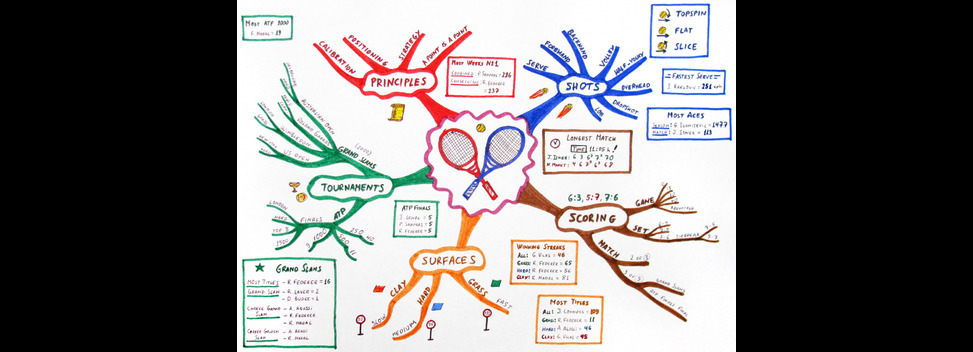 MOST ATP 1000
R. NADAL = 19
CALIBRATION
POSITIONING
STRATEGY
A POINT IS A POINT
PRINCIPLES
MOST WEEKS Nº1
COMBINED: P. SAMPRAS = 286
CONSECUTIVE: R. FEDERER
= 237
SERVE
FOREHAND
BACKHAND
VOLLEY
HALF-VOLLEY
OVERHEAD
DROPSHOT
LOB
SHOTS
TOPSPIN
FLAT
SLICE
FASTEST SERVE
I. KARLOVIC = 251
MOST ACES
SEASON: G. IVANISEVIC = 1477
MATCH: J. ISNER = 113
LONGEST MATCH
TIME 11:05 h!
J. ISNER: 6 3 6 7 70
N. MAHUT: 4 6 7 6 68
AUSTRALIAN OPEN
ROLAND GARROS
WIMBLEDON
US OPEN
GRAND SLAMS
(2000)
TOURNAMENTS
ATP
FINALS
LONDON
HARD
TOP 8
1500
1000
500
250
40
11
ATP FINALS
I. LENDL = 5
P. SAMPRAS = 5
R. FEDERER = 5
GRAND SLAMS
MOST TITLES - R. FEDERER = 16
GRAND SLAM - R. LAVER = 2
- D. BUDGE = 1
CAREER GRAND SLAM - A. AGASSI
- R. FEDERER
- R. NADAL
CAREER GOLDEN SLAM - A. AGASSI
- R. NADAL
SURFACES
CLAY
HARD
GRASS
SLOW
MEDIUM
FAST
WINNING STREAKS
ALL: G. VILAS = 46
GRASS: R. FEDERER = 65
HARD: R. FEDERER = 56
CLAY: R. NADAL = 81
MOST TITLES
ALL: J. CONNORS = 109
GRASS: R. FEDERER = 11
HARD: A. AGASSI = 46
CLAY: G. VILAS = 45
6:3, 5:7, 7:6
SCORING
GAME
ADVANTAGE
SET
TIEBREAK
MATCH
2 OF 3
3 OF 5
GRAND SLAMS
ATP FINALS FINAL